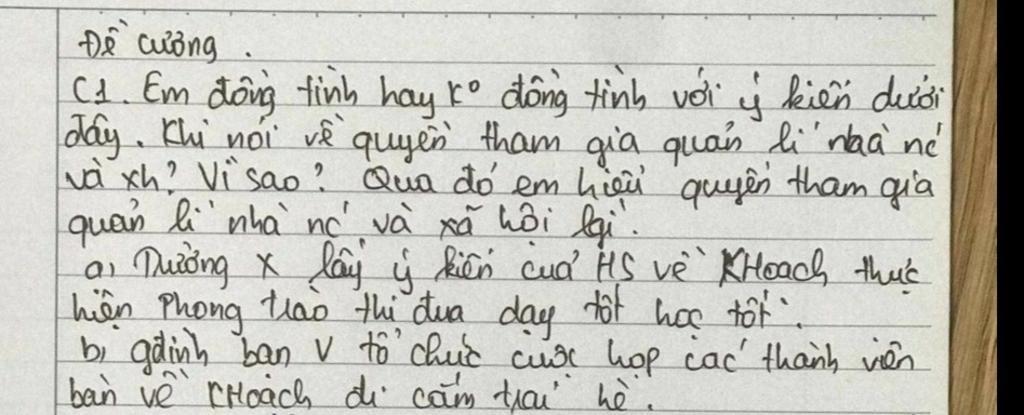 Đề cương.
C1. Em đồng tình hay ko đồng tình với ý kiến dưới
đây. Khi nói về quyền tham gia quản lí nhà nc
và xh? Vì sao? Qua đó em hiểu quyền tham gia
quản lí nhà nc và xã hội lgì.
a, Trường X lấy ý kiến của HS về KHoạch thực
hiện Phong trào thi đua dạy tốt học tốt.
b, gđình bạn V tổ chức cuộc họp các thành viên
bàn về KHoạch đi cắm trại hè.